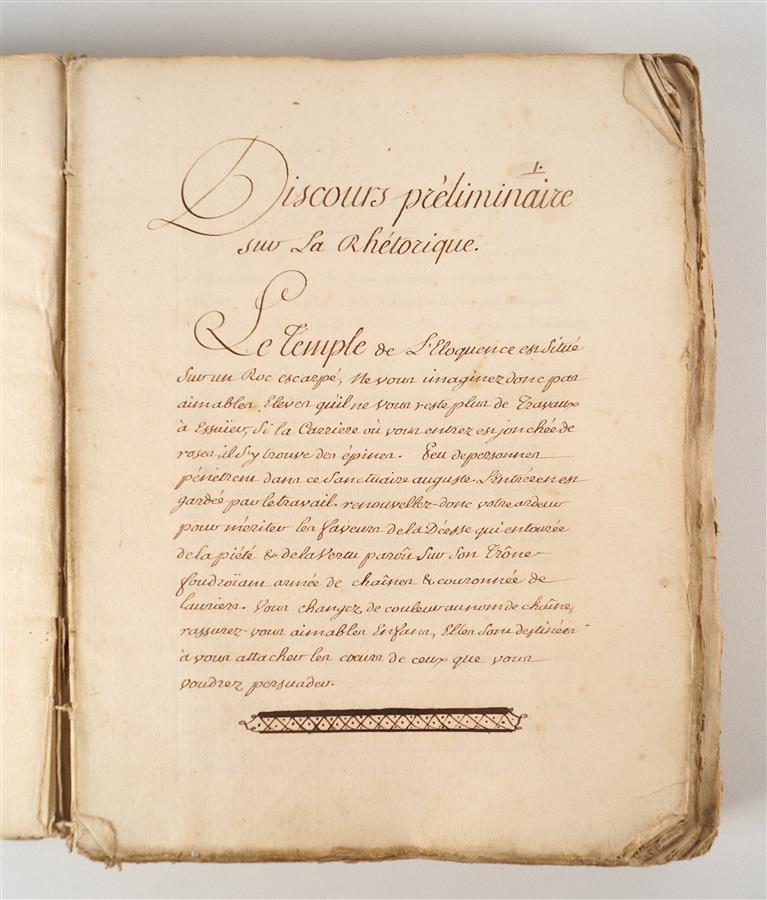 1.
Discours préliminaire
sur La Rhétorique.
Le Temple de L'Eloquence est Situé
Sur un Roc escarpé, Ne vous imaginez donc pas
aimables Eleves qu'il ne vous reste plus de Travaux
à Essuïer, Si la Carriere où vous entrez est jonchée de
roses, il s'y trouve des épines. Peu de personnes
pénétrent dans ce Sanctuaire auguste. L'entrée en est
gardée par le travail. renouvellez donc votre ardeur
pour mériter les faveurs de la Déesse qui entourée
de la piété & de la Vertu paroît Sur Son Trône
foudroïant armée de chaînes & couronnée de
lauriers. Vous changez de couleur au nom de chaîne,
rassurez-vous aimables Enfans, Elles Sont destinées
à vous attacher les cœurs de ceux que vous
voudrez persuader.